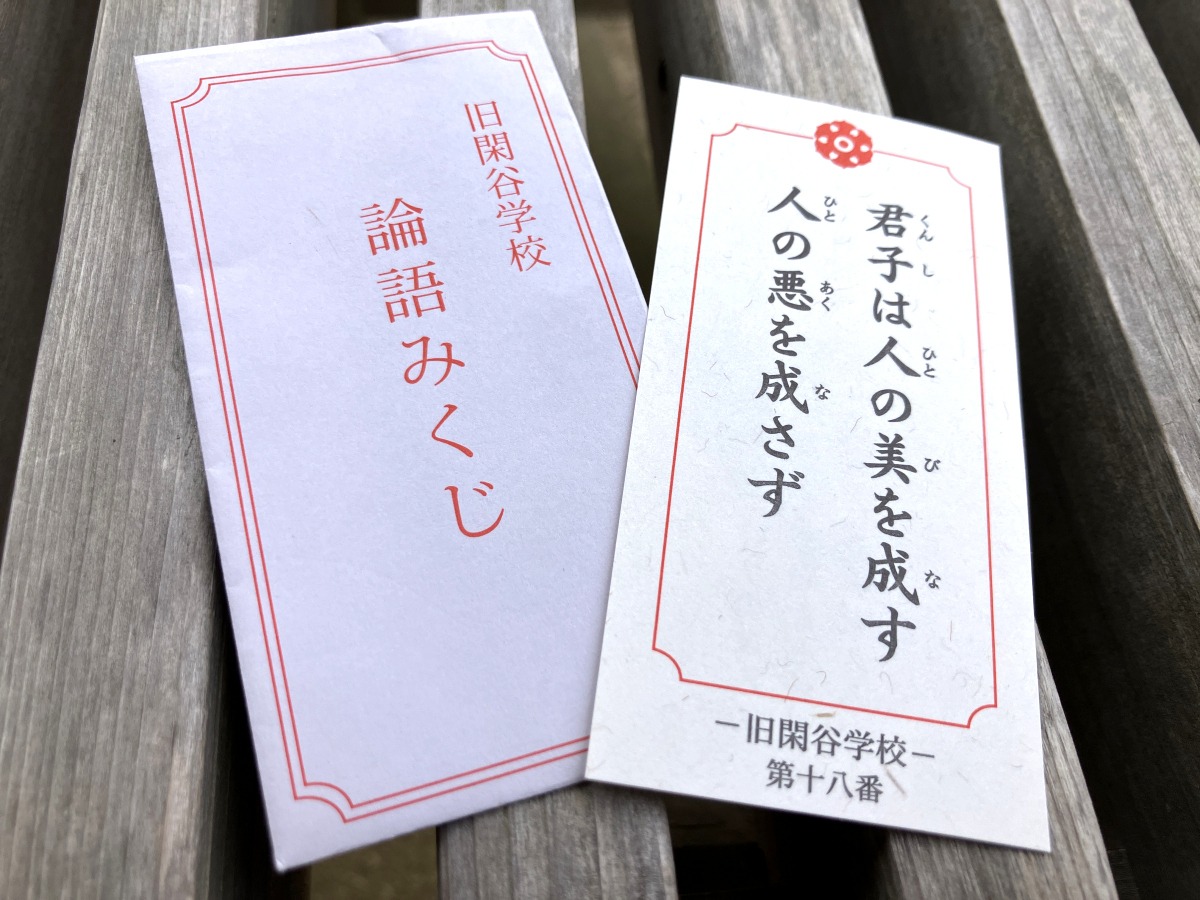 旧閑谷学校
論語みくじ
君子は人の美を成す
くんし ひと び な
人の悪を成さず
ひと あく な
－旧閑谷学校－
第十八番